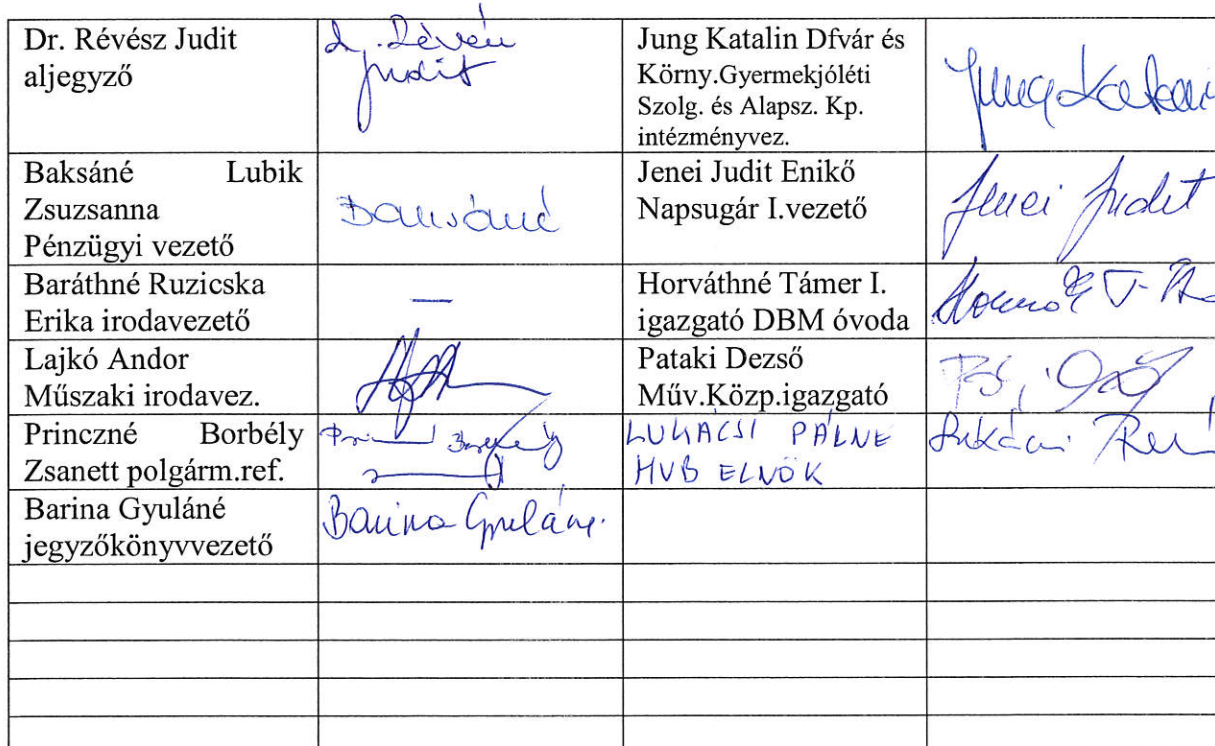 Dr. Révész Judit
aljegyző
d. Révész
Judit
Jung Katalin Dfvár és
Körny.Gyermekjóléti
Szolg. és Alapsz. Kp.
intézményvez.
Jung Katalin
Baksáné Lubik
Zsuzsanna
Pénzügyi vezető
Baksáné
Jenei Judit Enikő
Napsugár I.vezető
Jenei Judit
Baráthné Ruzicska
Erika irodavezető
—
Horváthné Támer I.
igazgató DBM óvoda
Lajkó Andor
Műszaki irodavez.
Pataki Dezső
Műv.Közp.igazgató
Princzné Borbély
Zsanett polgárm.ref.
LUKÁCSI PÁLNÉ
HVB ELNÖK
Barina Gyuláné
jegyzőkönyvvezető
Barina Gyuláné